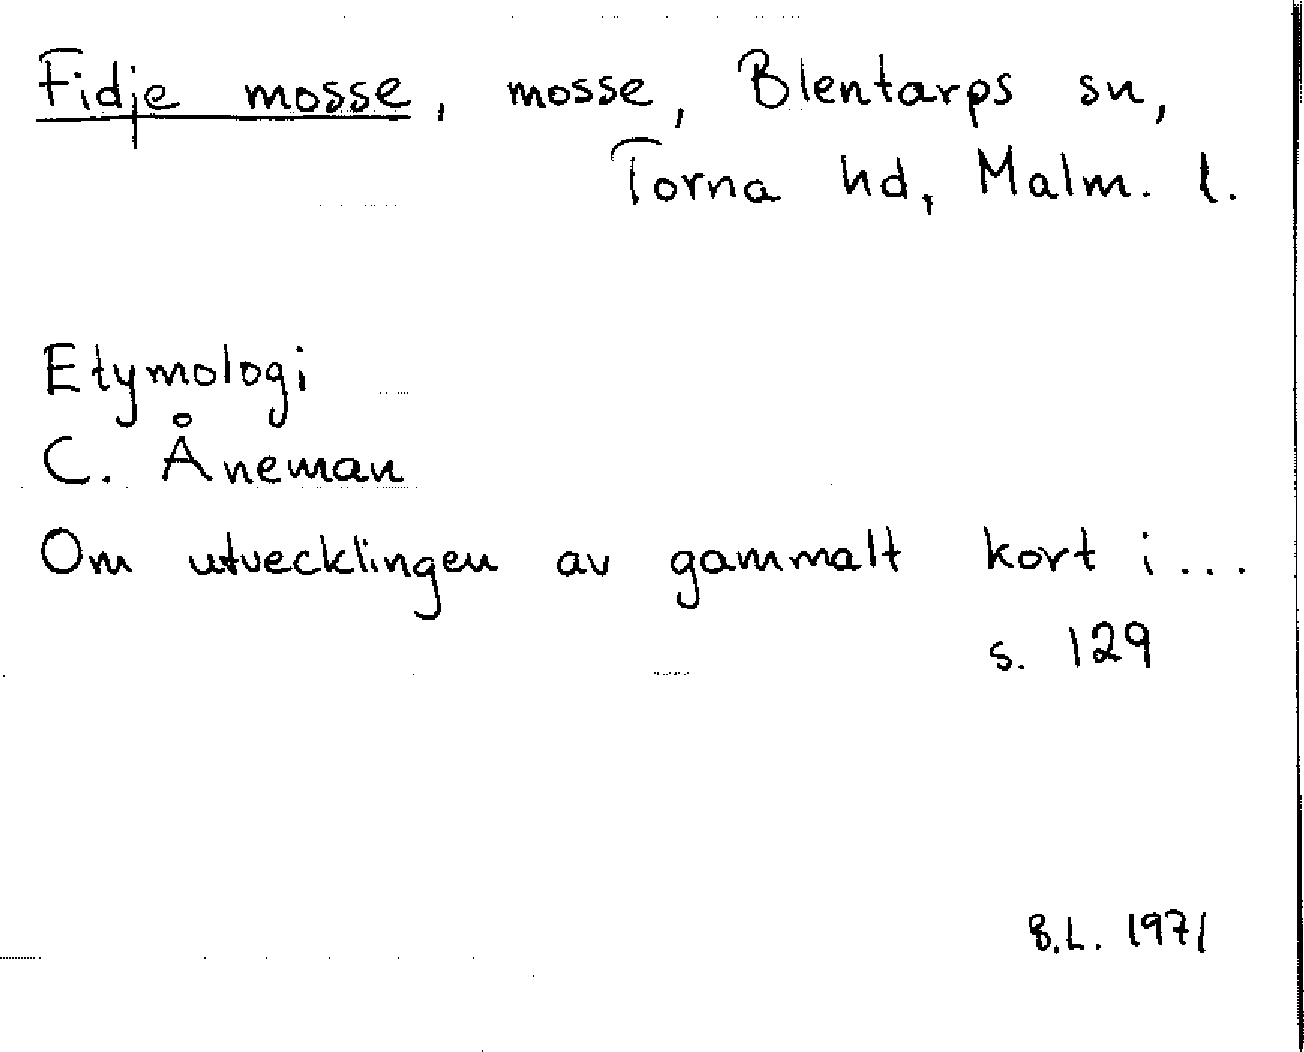 Fidje mosse, mosse, Blentarps sn,
Torna hd, Malm. l.
Etymologi
C. Åneman
Om utvecklingen av gammalt kort i...
s. 129
B.L. 1971